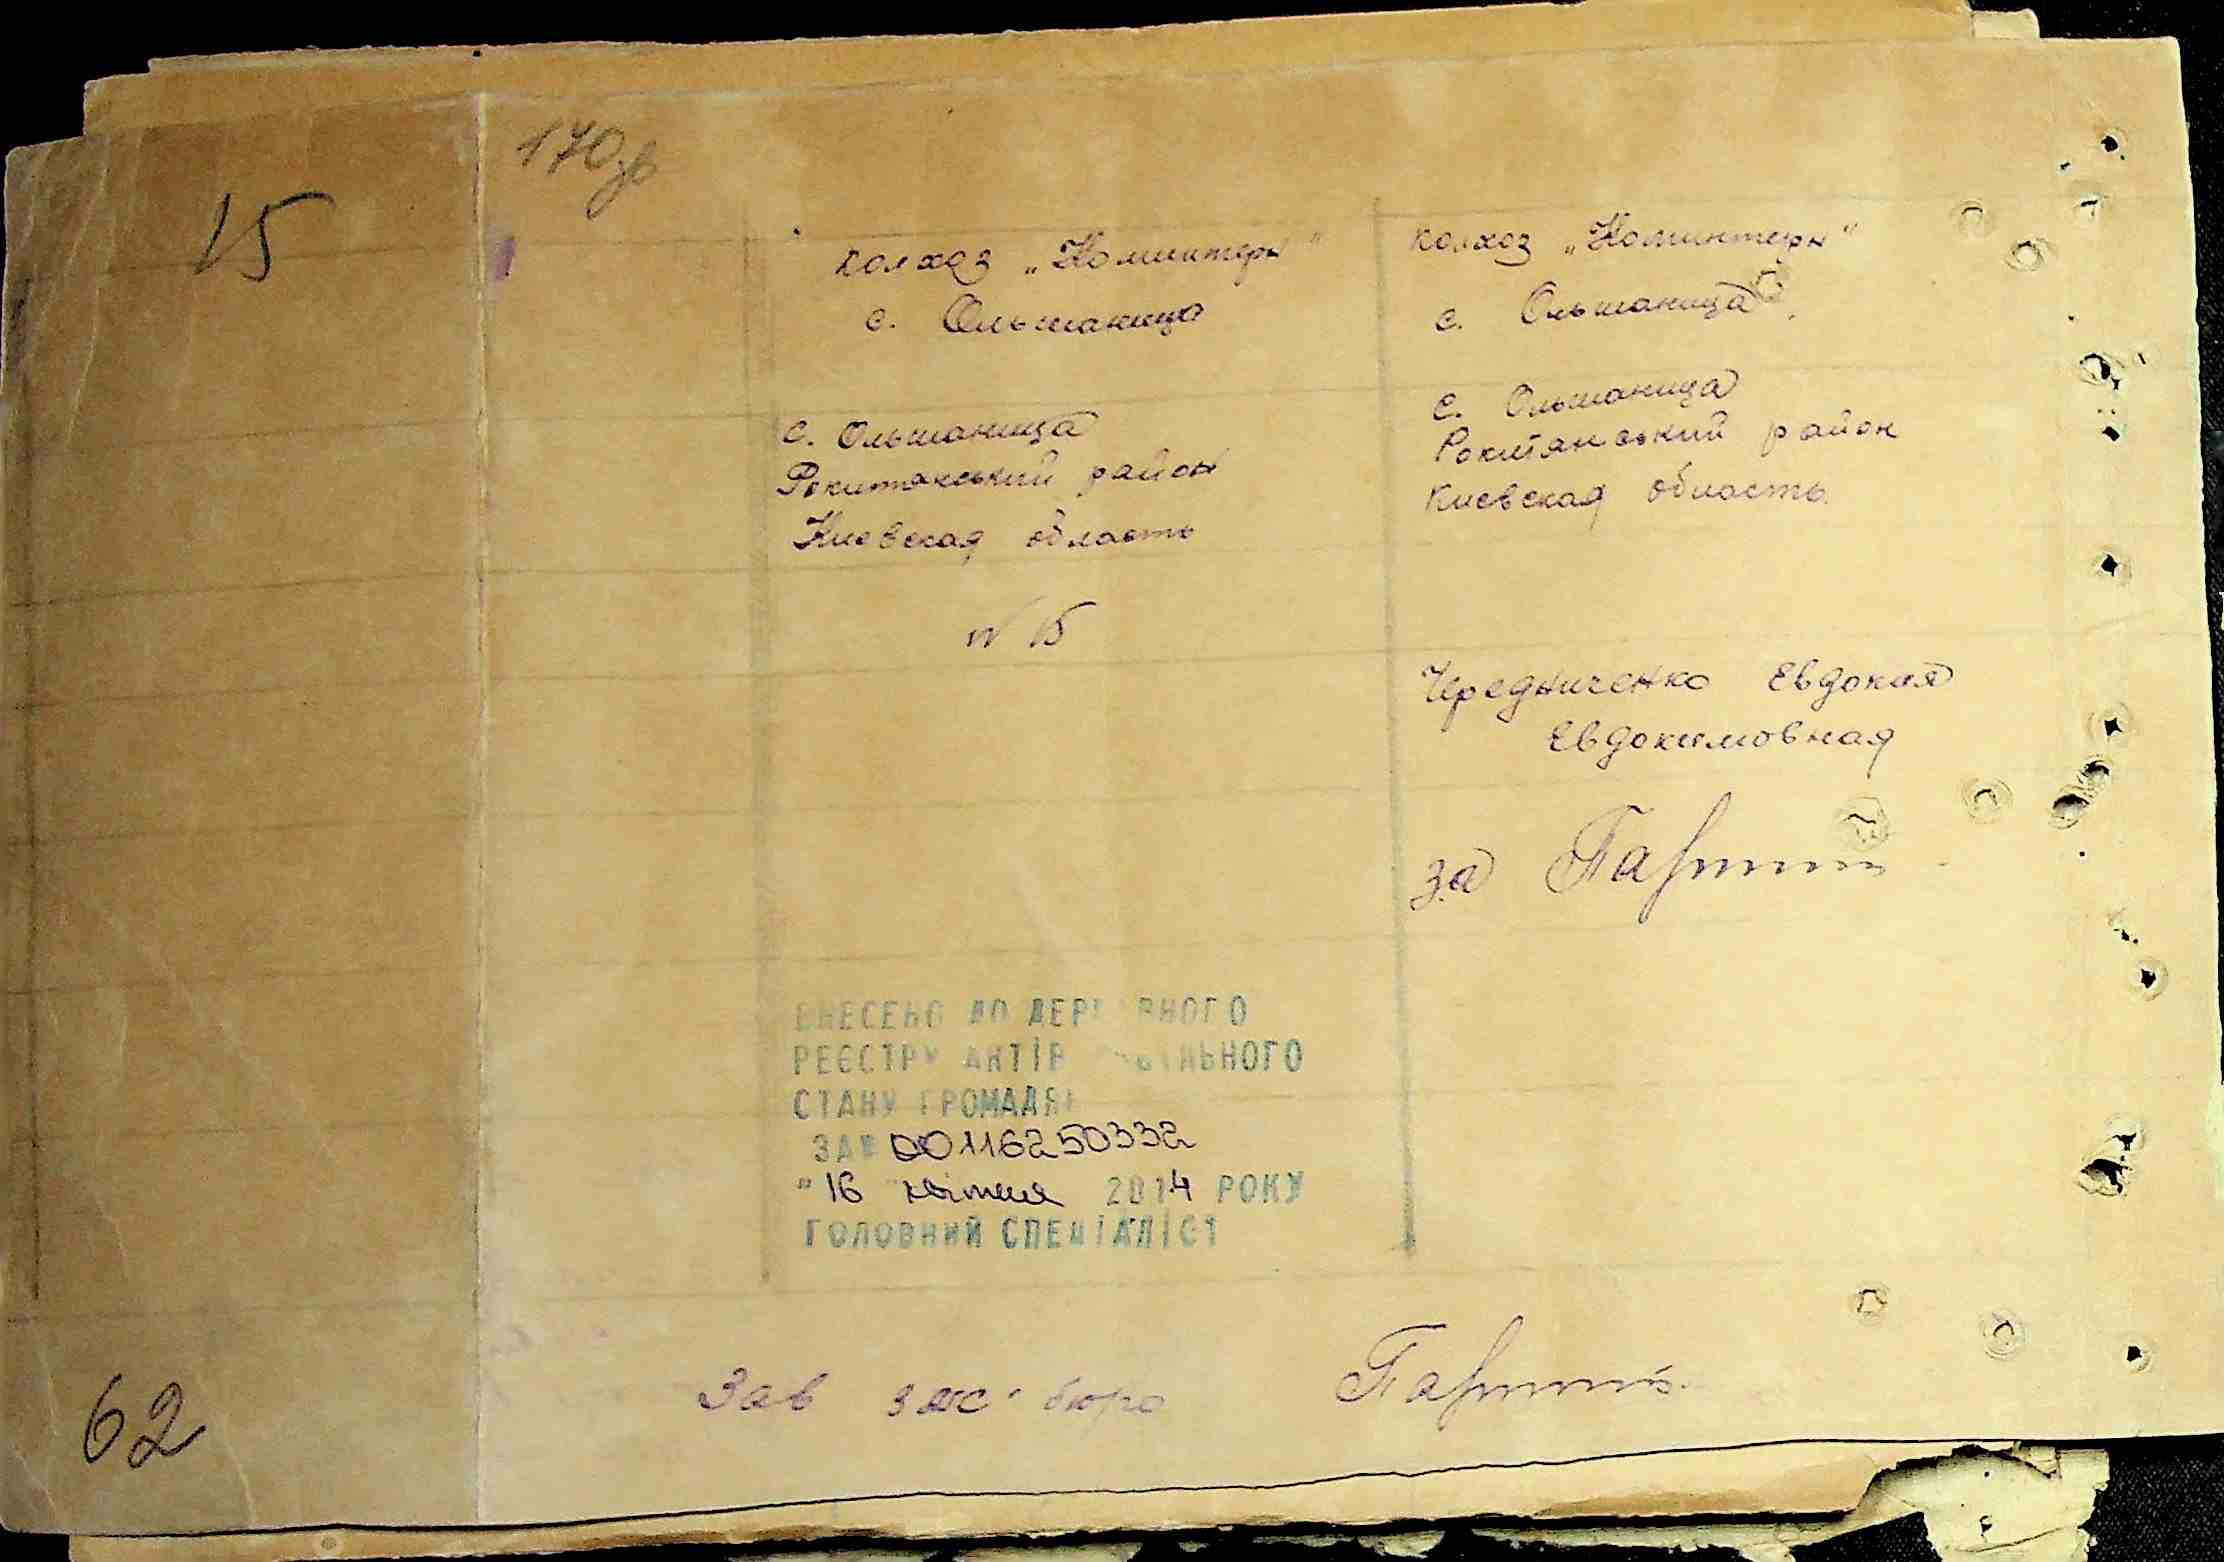 15
170зв
колхоз „Коминтерн"
с. Ольшаница
с. Ольшаница
Рокитянський район
Киевская область
№ 15
колхоз „Коминтерн"
с. Ольшаница
с. Ольшаница
Рокитянський район
Киевская область.
Чередниченко Евдокия
Евдокимовная
за
ВНЕСЕНО ДО ДЕРЖАВНОГО
РЕЄСТРУ АКТІВ ЦИВІЛЬНОГО
СТАНУ ГРОМАДЯН
ЗА № 00116250332
"16 квітня 2014 РОКУ
ГОЛОВНИЙ СПЕЦІАЛІСТ
Зав загс бюро
62